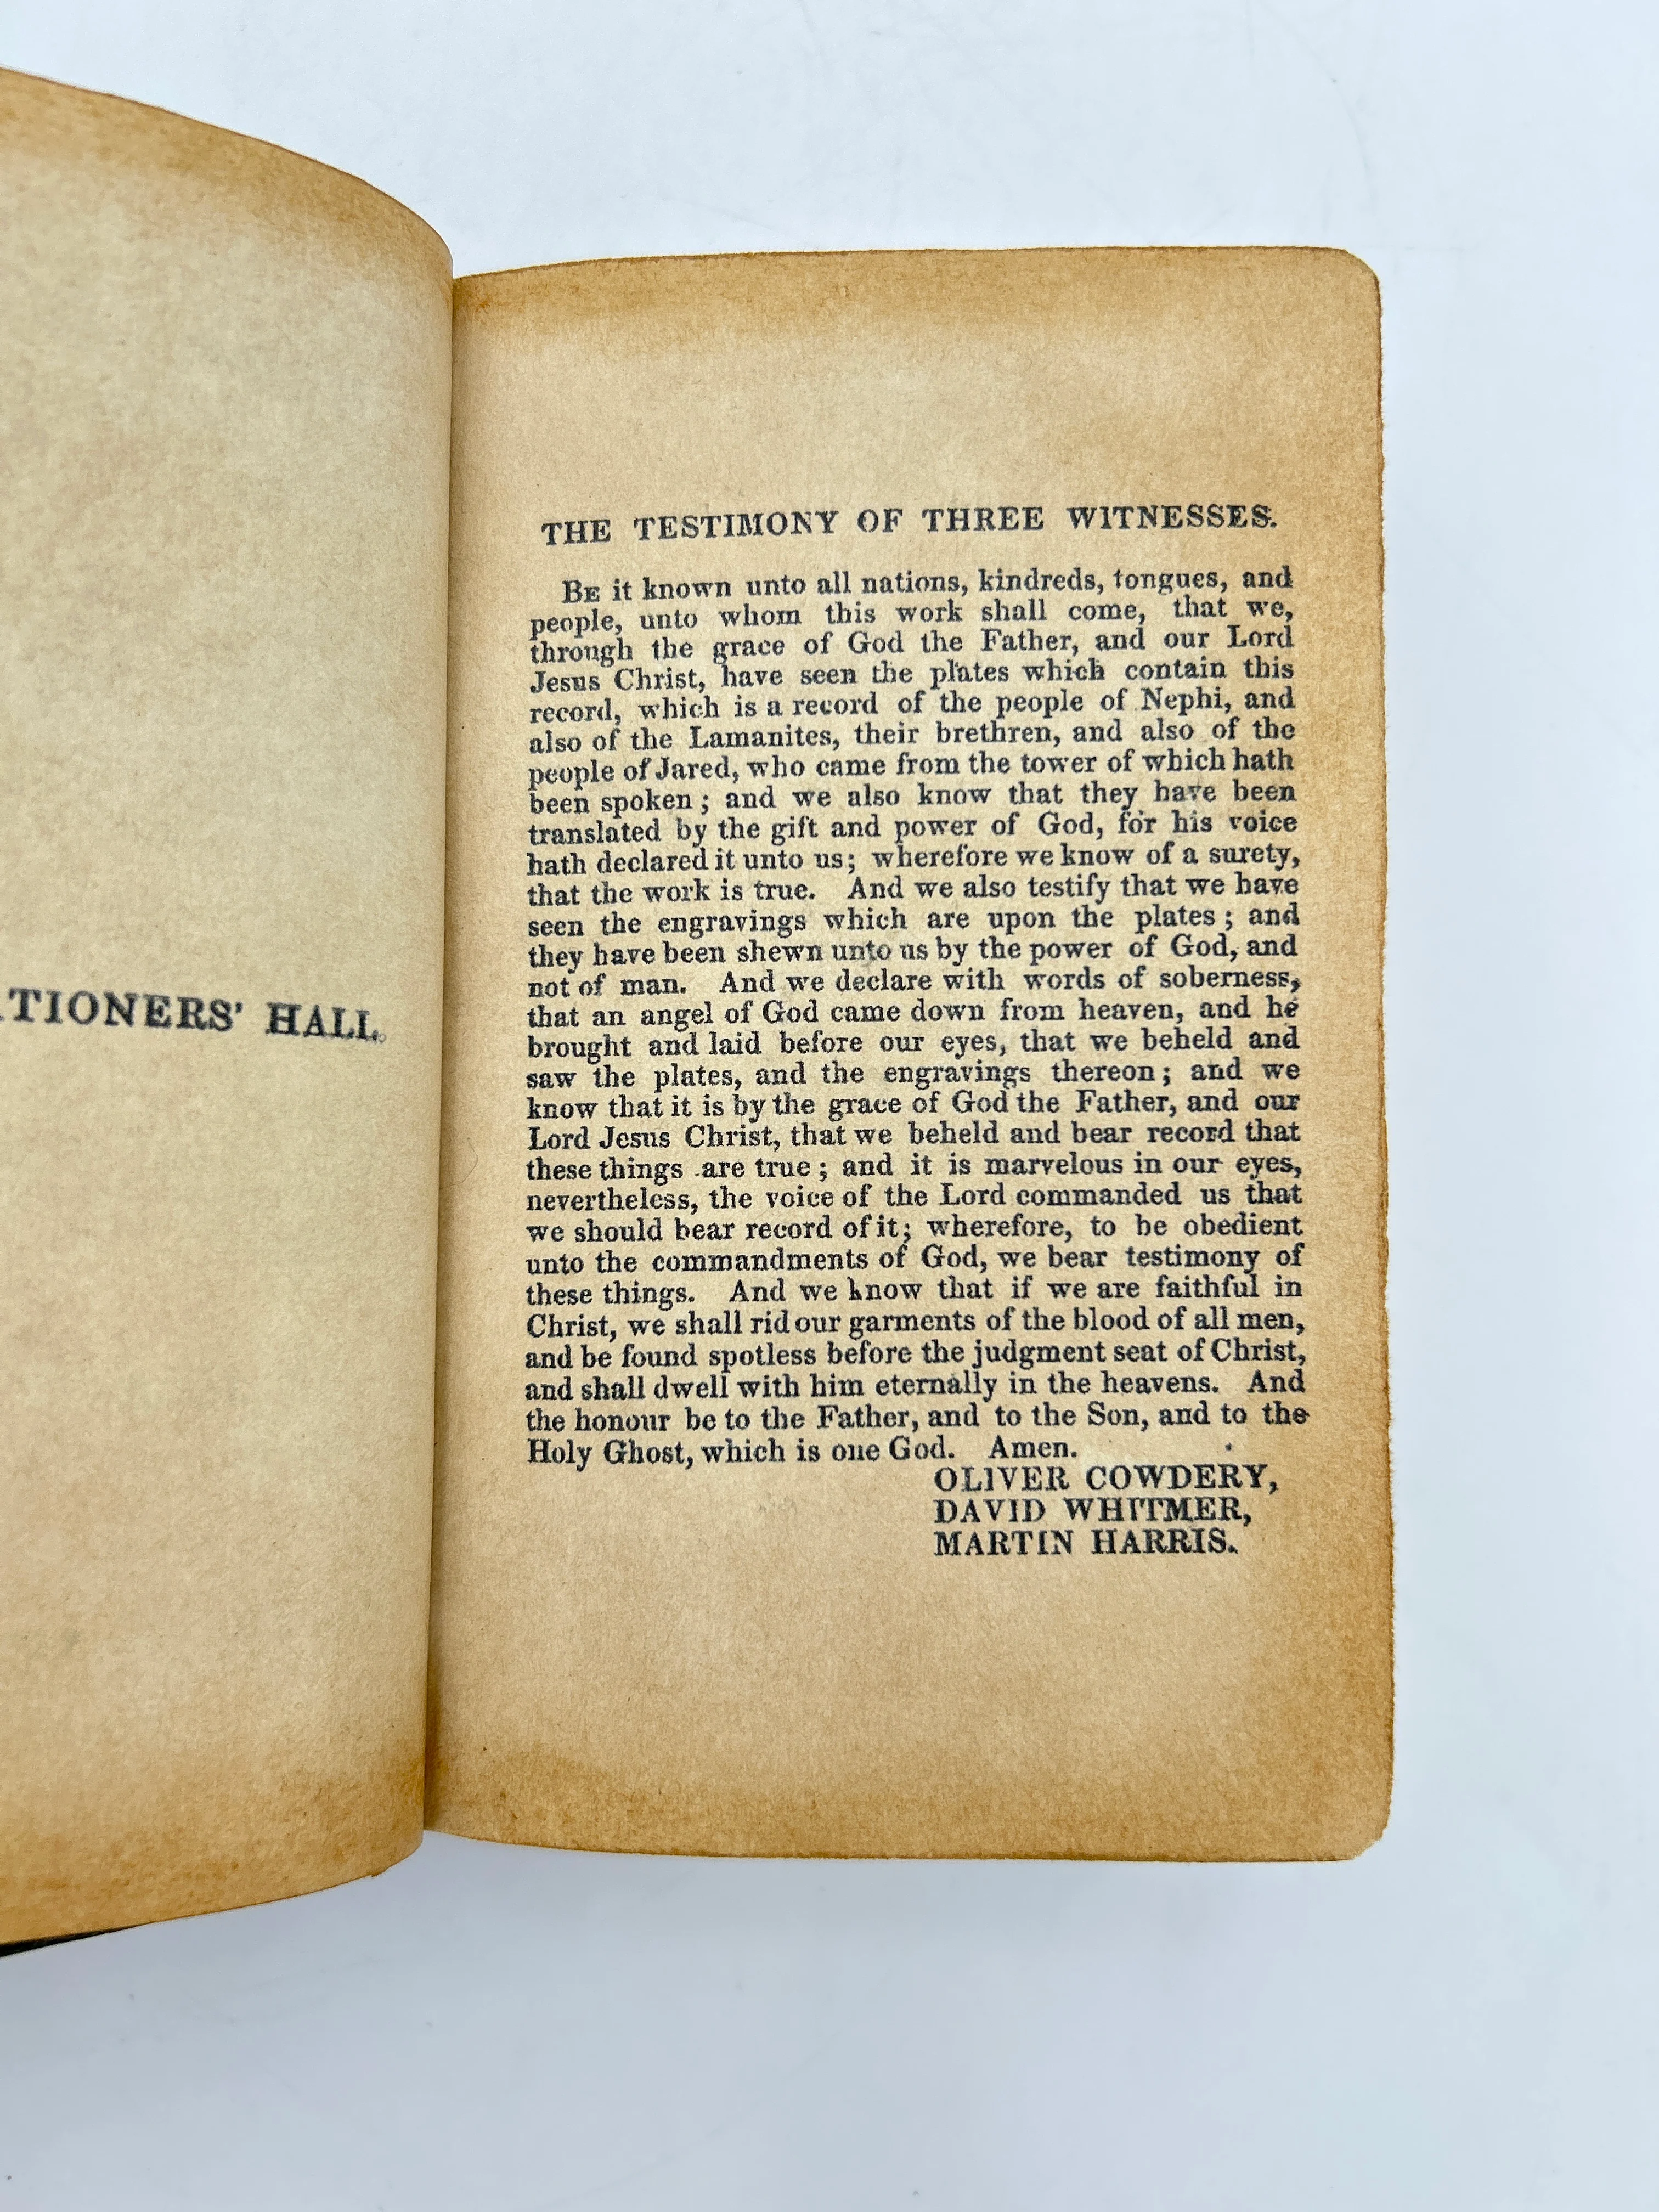 TIONERS' HALL.
THE TESTIMONY OF THREE WITNESSES.
BE it known unto all nations, kindreds, tongues, and
people, unto whom this work shall come, that we,
through the grace of God the Father, and our Lord
Jesus Christ, have seen the plates which contain this
record, which is a record of the people of Nephi, and
also of the Lamanites, their brethren, and also of the
people of Jared, who came from the tower of which hath
been spoken; and we also know that they have been
translated by the gift and power of God, for his voice
hath declared it unto us; wherefore we know of a surety,
that the work is true. And we also testify that we have
seen the engravings which are upon the plates; and
they have been shewn unto us by the power of God, and
not of man. And we declare with words of soberness,
that an angel of God came down from heaven, and he
brought and laid before our eyes, that we beheld and
saw the plates, and the engravings thereon; and we
know that it is by the grace of God the Father, and our
Lord Jesus Christ, that we beheld and bear record that
these things are true; and it is marvelous in our eyes,
nevertheless, the voice of the Lord commanded us that
we should bear record of it; wherefore, to be obedient
unto the commandments of God, we bear testimony of
these things. And we know that if we are faithful in
Christ, we shall rid our garments of the blood of all men,
and be found spotless before the judgment seat of Christ,
and shall dwell with him eternally in the heavens. And
the honour be to the Father, and to the Son, and to the
Holy Ghost, which is one God. Amen.
OLIVER COWDERY,
DAVID WHITMER,
MARTIN HARRIS.